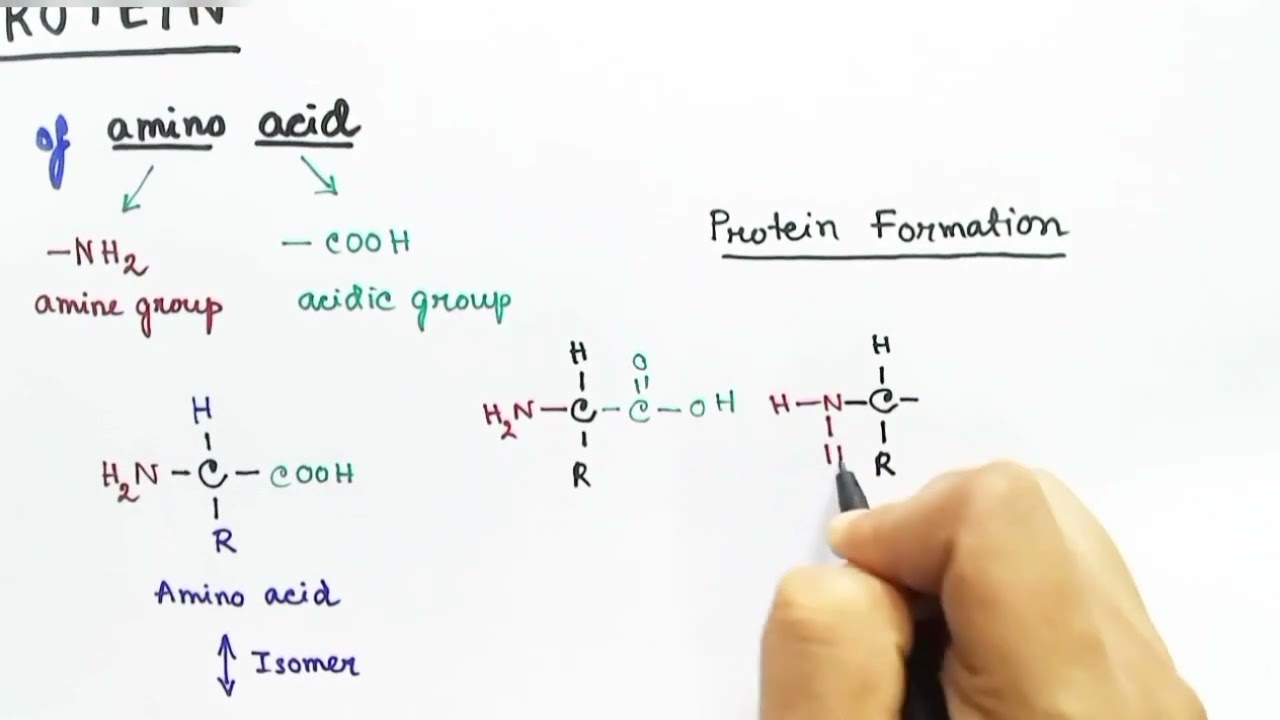 ROTEIN
of amino acid
-NH2
amine group
- COOH
acidic group
H
H2N - C - COOH
R
Amino acid
Isomer
Protein Formation
H O
H2N - C - C - OH
R
H
H - N - C -
R